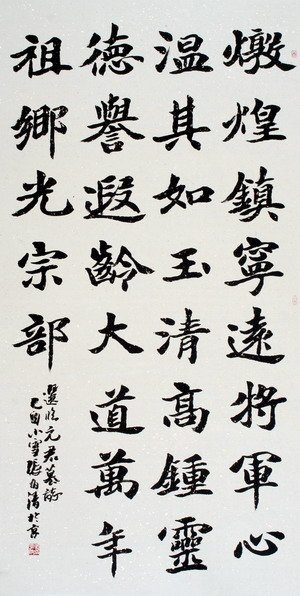 燉煌鎮寧遠將軍心
温其如玉清高鍾靈
德譽遐齡大道萬年
祖鄉光宗部
選臨元君墓誌
乙酉小雪張於京